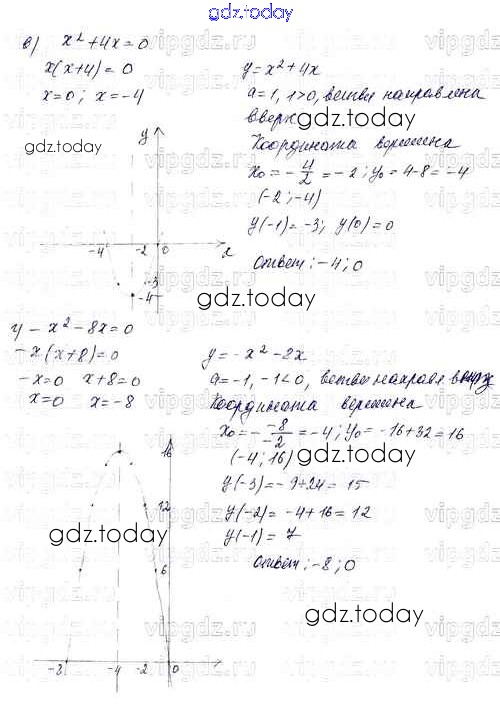 gdz.today
в) x² + 4x = 0
x(x+4) = 0
x = 0; x = -4
y = x² + 4x
a = 1, 1>0, ветви направлены
вверх
gdz.today
gdz.today
Координата вершина
x₀ = -4/2 = -2; y₀ = 4-8 = -4
(-2; -4)
y(-1) = -3; y(0) = 0
Ответ: -4; 0
y
-4 -2 0 x
-3
-4
gdz.today
г) - x² - 8x = 0
-x(x+8) = 0
-x = 0 x+8 = 0
x = 0 x = -8
y = -x² - 8x
a = -1, -1<0, ветви направл вниз
Координата вершина
x₀ = - -8/-2 = -4; y₀ = -16+32 = 16
(-4; 16)
gdz.today
y(-3) = -9+24 = 15
y(-2) = -4+16 = 12
y(-1) = 7
Ответ: -8; 0
16
12
gdz.today
6
gdz.today
-8 -4 -2 0
vipgdz.ru